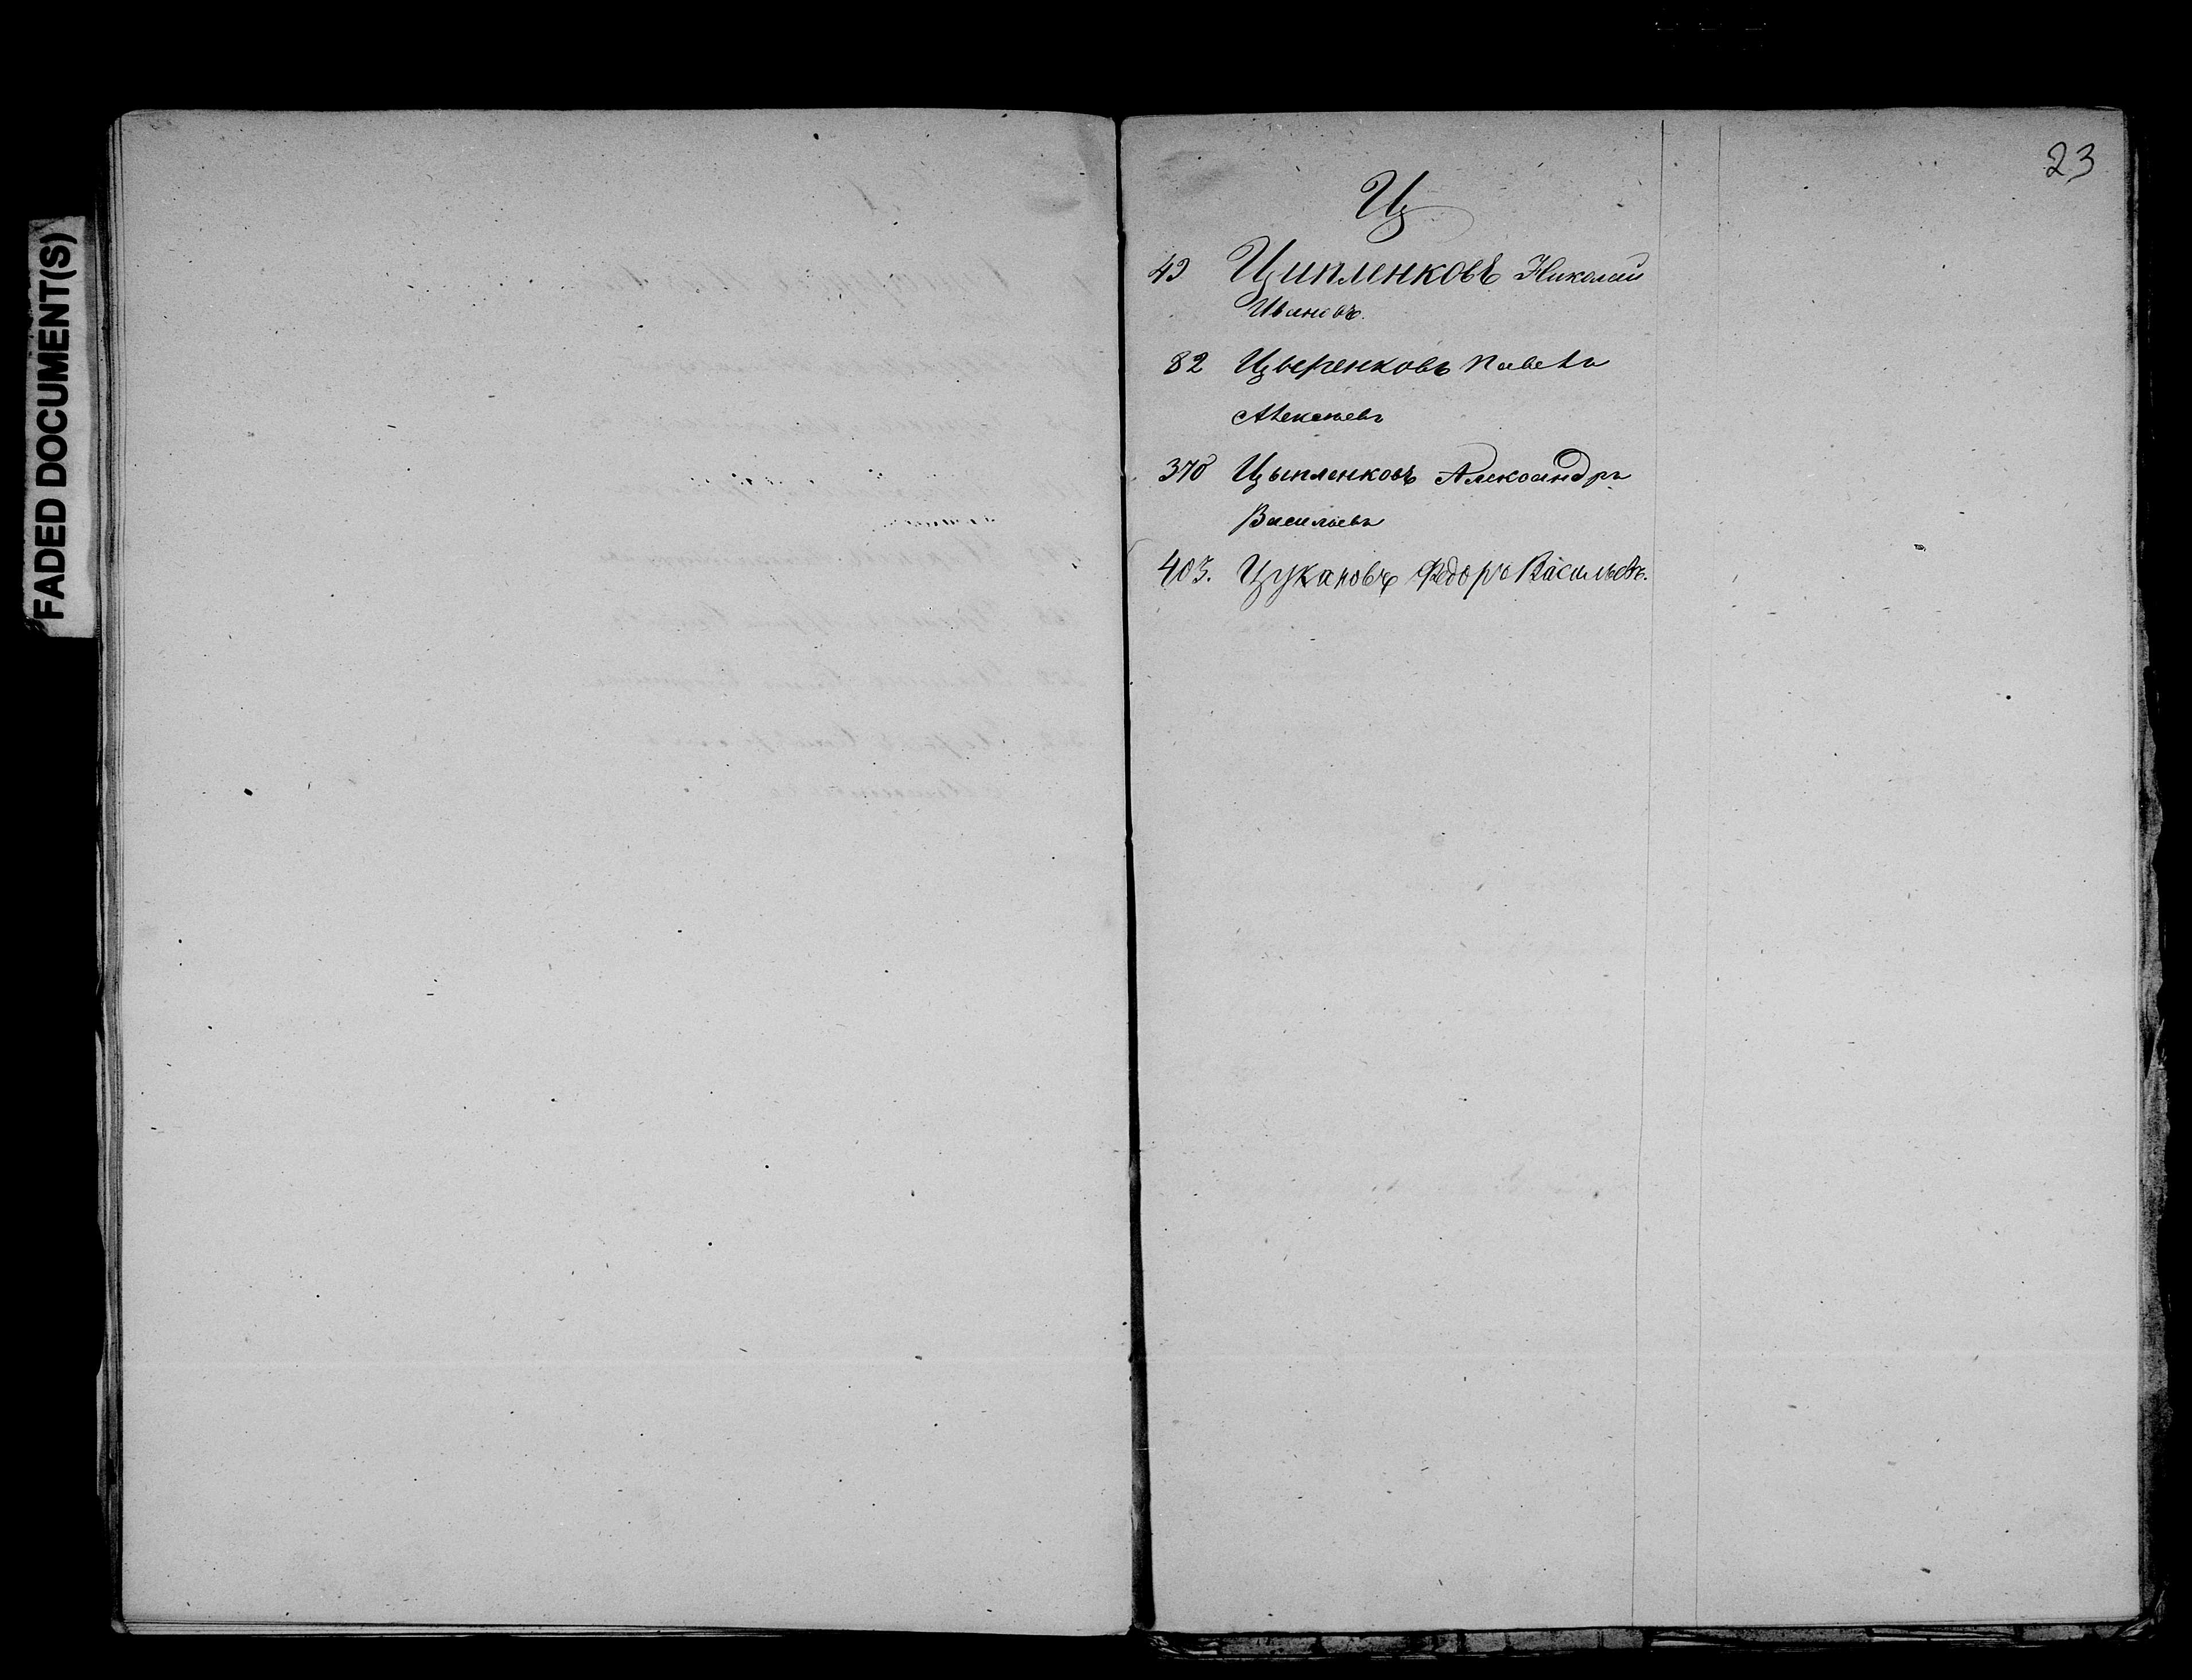 FADED DOCUMENT(S)
23
Ц
49 Ципленковъ Николай
Ивановъ.
82 Цыренковъ Павелъ
Алексѣевъ
370 Цыпленковъ Александръ
Васильевъ
403. Цукановъ Федоръ Васильевъ.